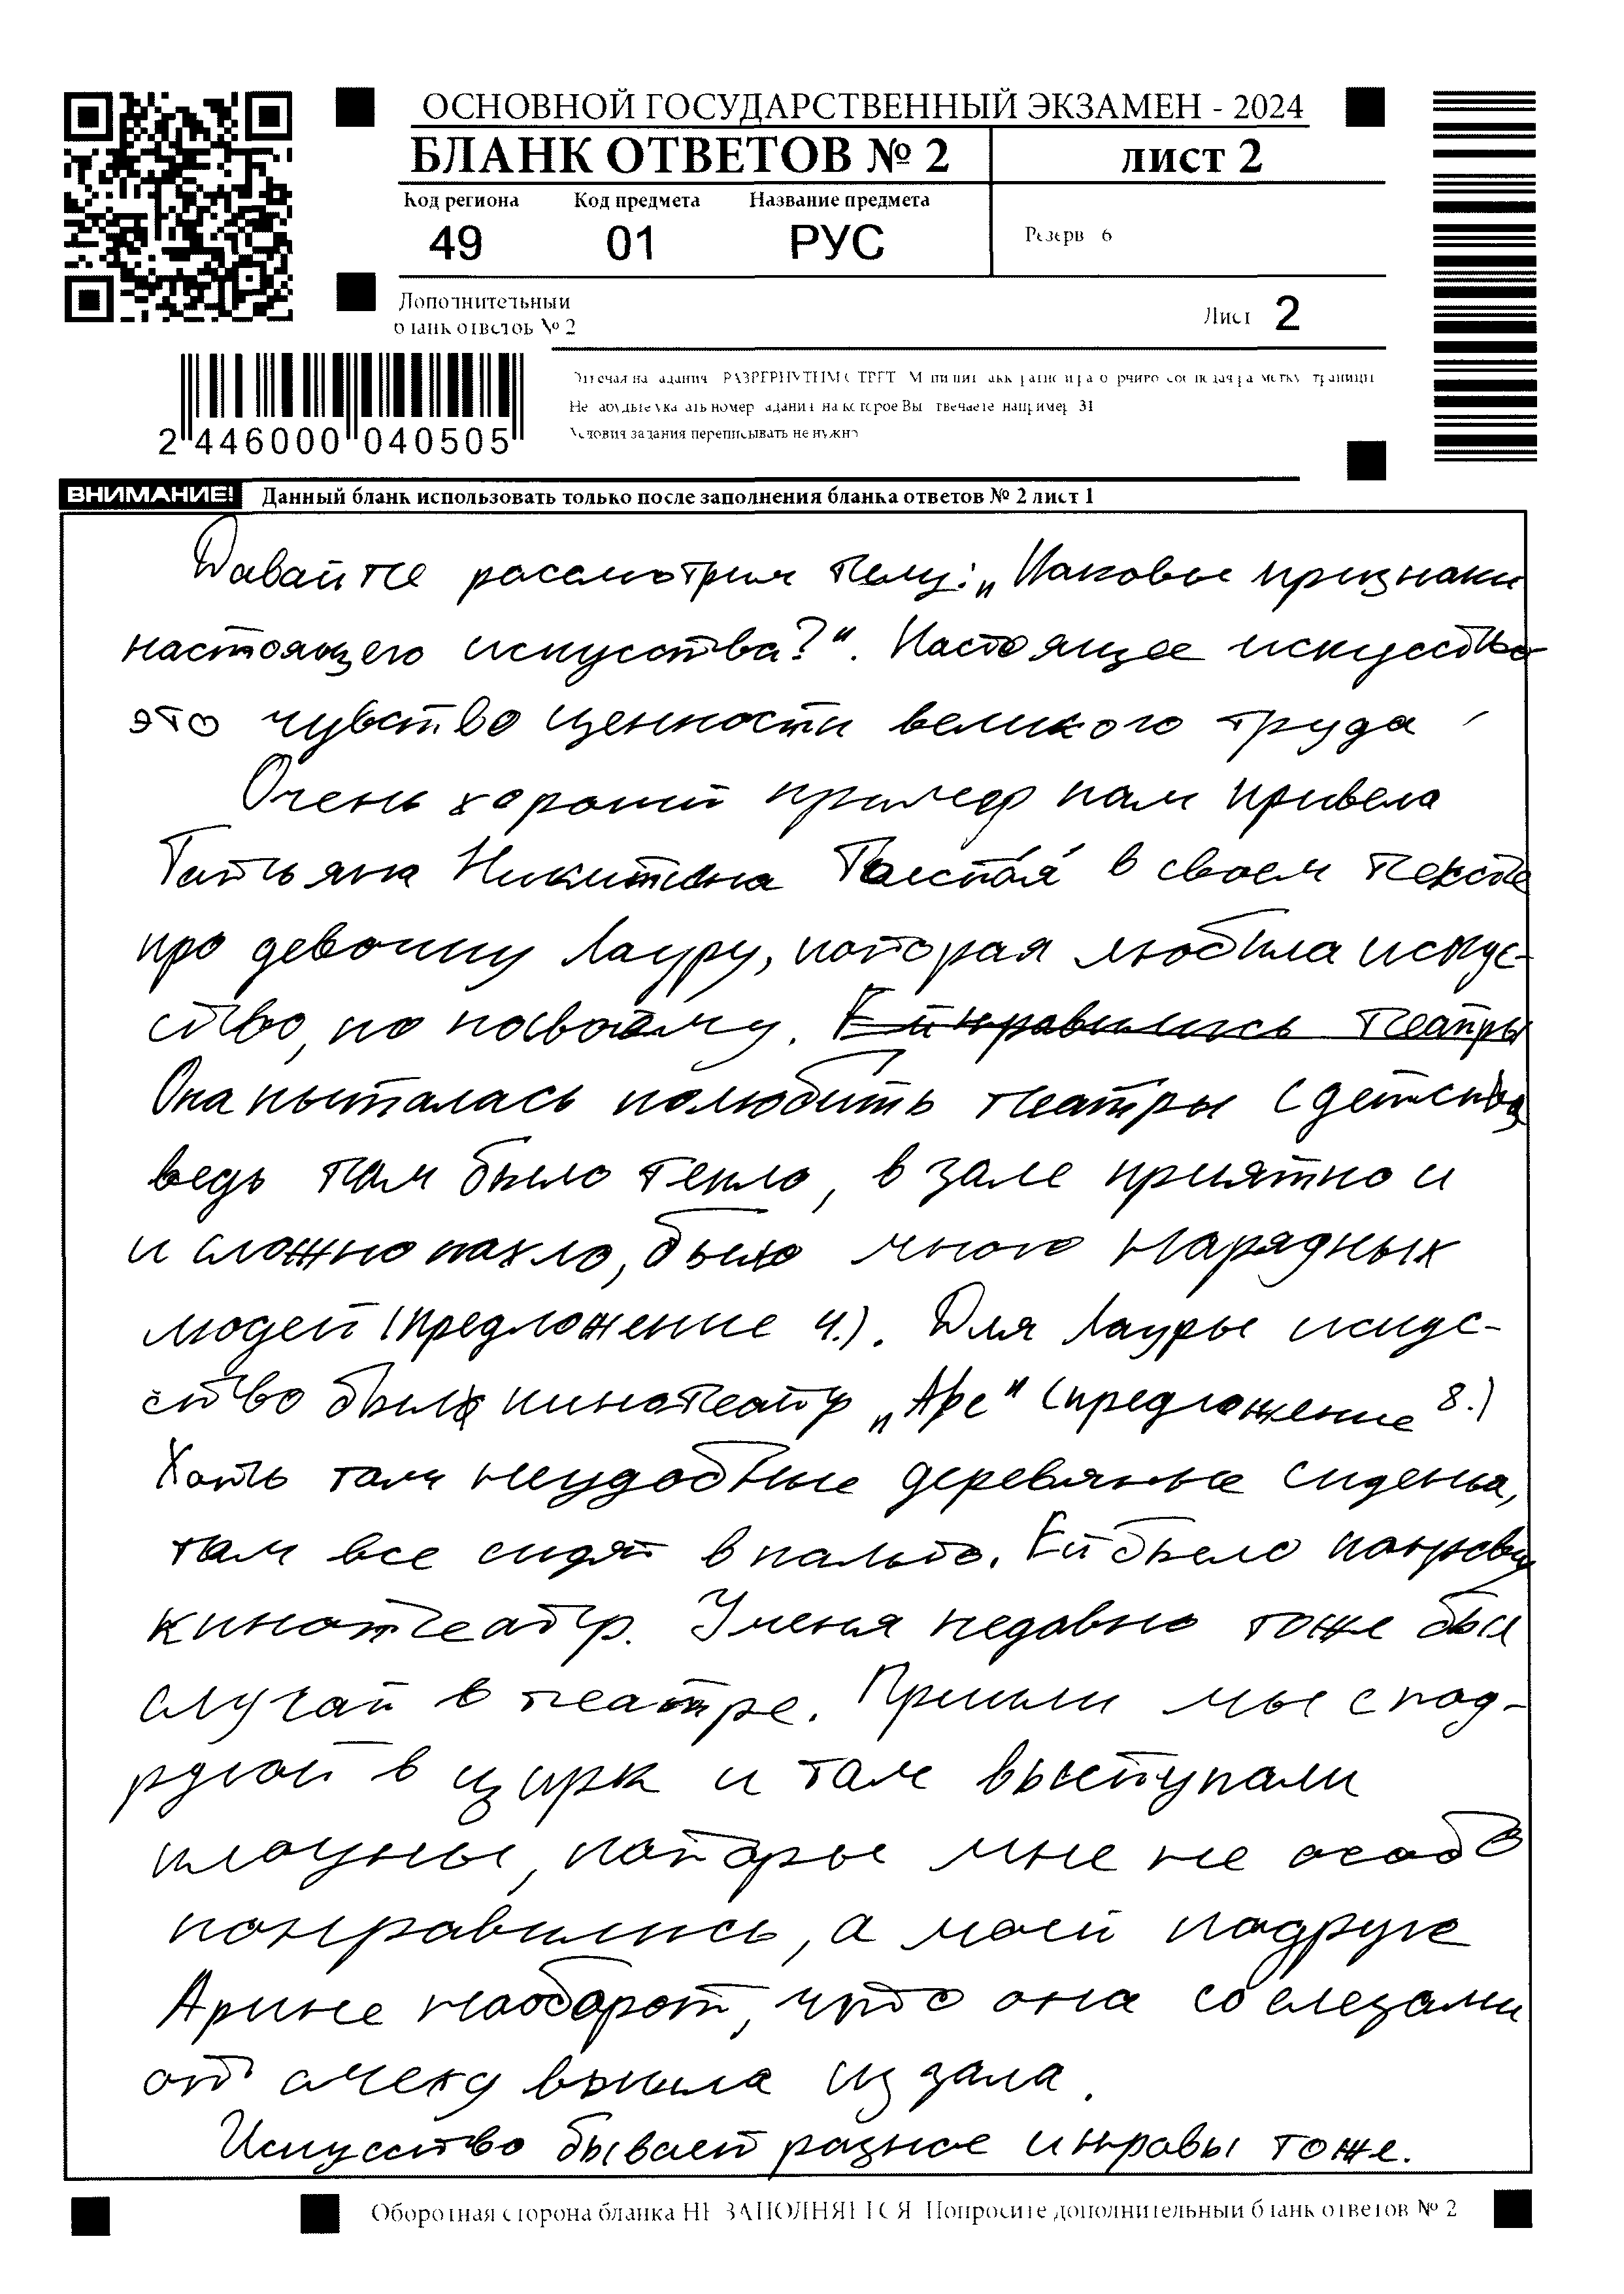 ОСНОВНОЙ ГОСУДАРСТВЕННЫЙ ЭКЗАМЕН - 2024
БЛАНК ОТВЕТОВ № 2
ЛИСТ 2
Код региона Код предмета Название предмета
49 01 РУС
Резерв 6
Дополнительный
бланк ответов № 2
Лист 2
2 446000 040505
Не забудьте указать номер задания на которое Вы отвечаете например 31
Условия задания переписывать не нужно
ВНИМАНИЕ! Данный бланк использовать только после заполнения бланка ответов № 2 лист 1
Давайте рассмотрим тему: „Каковы признаки
настоящего искусства?“. Настоящее искусство
это чувство ценности великого труда
Очень хороший пример нам привела
Татьяна Никитична Толстая в своем тексте
про девочку Лауру, которая любила искус-
ство, но по своему. Ей нравились театры
Она пыталась полюбить театры с детства
ведь там было тепло, в зале приятно и
и сложно пахло, было много нарядных
людей (предложение 4.). Для Лауры искус-
ство было кинотеатр „Арс“ (предложение 8.)
Хоть там неудобные деревянные сиденья,
там все сидят в пальто. Ей было
кинотеатр. У меня недавно тоже был
случай в театре. Пришли мы с под-
ругой в цирк и там выступали
клоуны, которые мне не особо
понравились, а моей подруге
Арине наоборот, что она со слезами
от смеху вышла из зала.
Искусство бывает разное и нравы тоже.
Оборотная сторона бланка НЕ ЗАПОЛНЯЕТСЯ Попросите дополнительный бланк ответов № 2